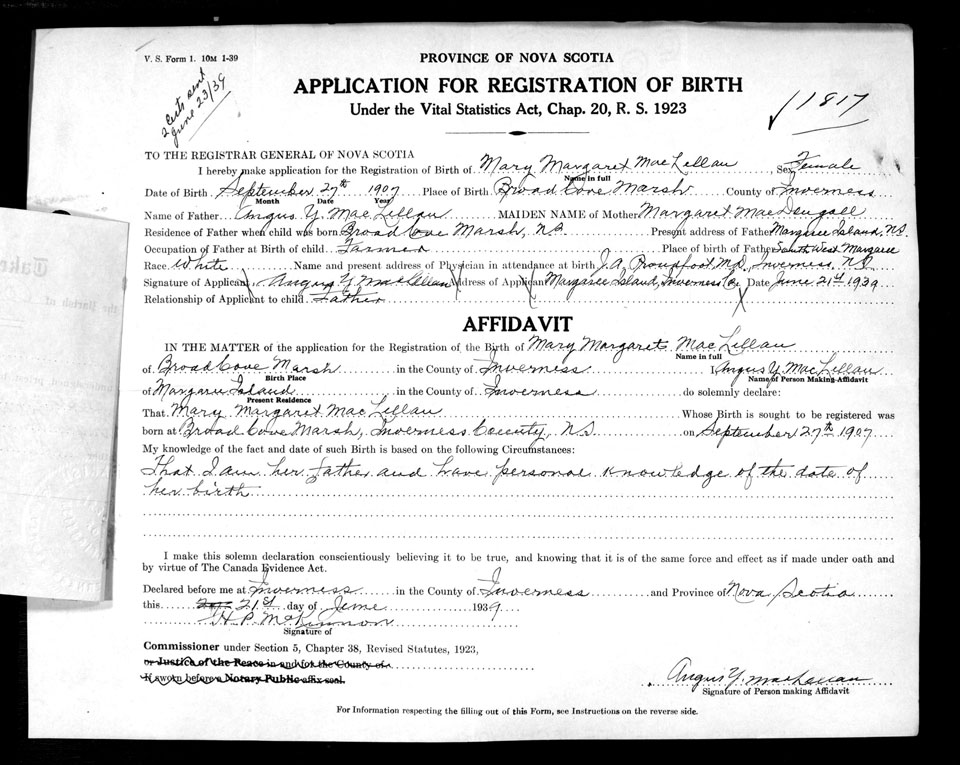 V. S. Form 1. 10M 1-39
PROVINCE OF NOVA SCOTIA
APPLICATION FOR REGISTRATION OF BIRTH
Under the Vital Statistics Act, Chap. 20, R. S. 1923
2 Certs sent
June 23/39
1817
TO THE REGISTRAR GENERAL OF NOVA SCOTIA
I hereby make application for the Registration of Birth of Mary Margaret MacLellan, Sex Female
Name in full
Date of Birth September 27th 1907 Place of Birth Broad Cove Marsh County of Inverness
Month Date Year
Name of Father Angus Y. MacLellan MAIDEN NAME of Mother Margaret MacDougall
Residence of Father when child was born Broad Cove Marsh, N.S. Present address of Father Margaree Island, N.S.
Occupation of Father at Birth of child Farmer Place of birth of Father South West Margaree
Race White Name and present address of Physician in attendance at birth J. A. Proudfoot M.D. Inverness, N.S.
Signature of Applicant Angus Y MacLellan Address of Applicant Margaree Island, Inverness Co. Date June 21st 1939
Relationship of Applicant to child Father
AFFIDAVIT
IN THE MATTER of the application for the Registration of the Birth of Mary Margaret MacLellan
Name in full
of Broad Cove Marsh in the County of Inverness I Angus Y. MacLellan
Birth Place Name of Person Making Affidavit
of Margaree Island in the County of Inverness do solemnly declare:
Present Residence
That Mary Margaret MacLellan Whose Birth is sought to be registered was
born at Broad Cove Marsh, Inverness County, N.S on September 27th 1907
My knowledge of the fact and date of such Birth is based on the following Circumstances:
That I am her father and have personal knowledge of the date of
her birth
I make this solemn declaration conscientiously believing it to be true, and knowing that it is of the same force and effect as if made under oath and
by virtue of The Canada Evidence Act.
Declared before me at Inverness in the County of Inverness and Province of Nova Scotia
this 21st day of June 1939
H. P. McKinnon
Signature of
Commissioner under Section 5, Chapter 38, Revised Statutes, 1923,
or Justice of the Peace in and for the County of
If sworn before a Notary Public affix seal.
Angus Y. MacLellan
Signature of Person making Affidavit
For Information respecting the filling out of this Form, see Instructions on the reverse side.